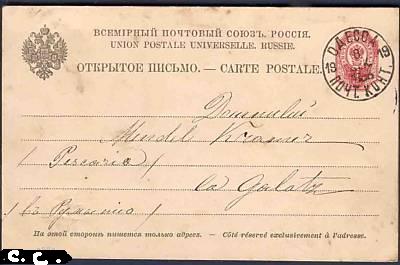 ВСЕМІРНЫЙ ПОЧТОВЫЙ СОЮЗЪ. РОССІЯ.
UNION POSTALE UNIVERSELLE. RUSSIE.
ОТКРЫТОЕ ПИСЬМО. — CARTE POSTALE.
ОДЕССА
19
ПОЧТ. КОНТ.
Domnului
Mendel Kramer
(Pescaria)
la Galatz
(въ Румынію)
На этой сторонѣ пишется только адресъ. — Côté réservé exclusivement à l'adresse.
C. C.